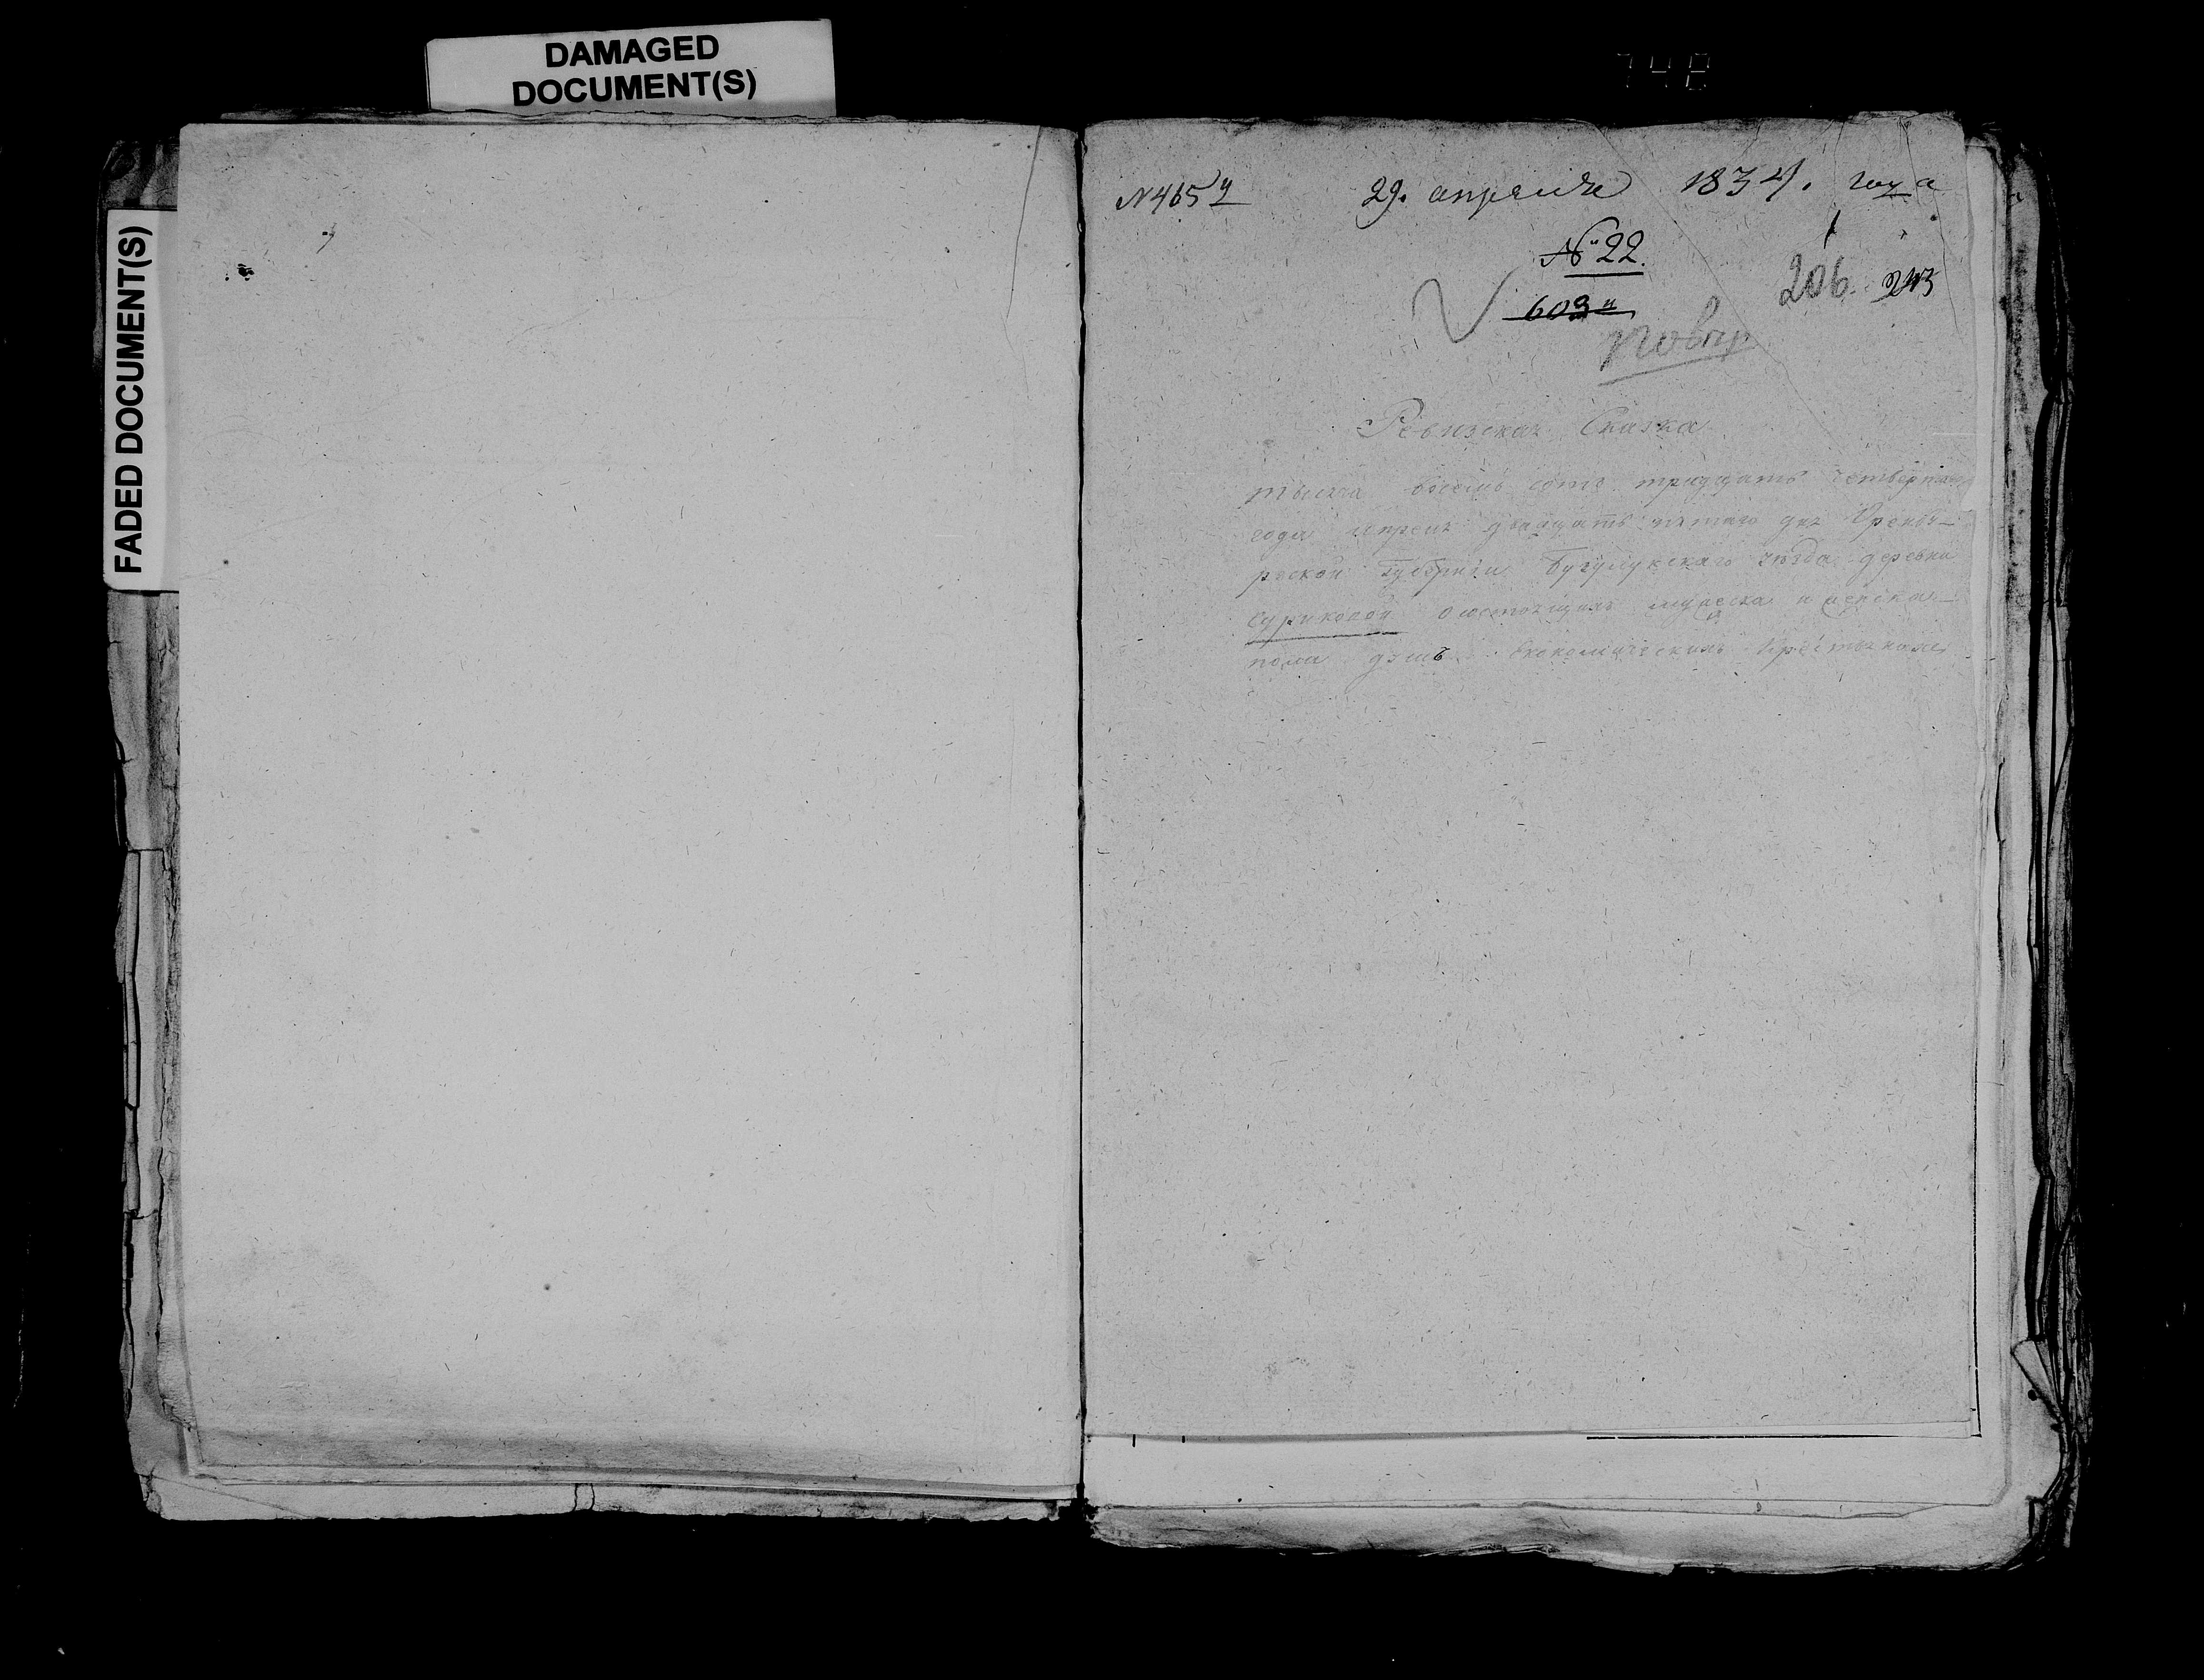 DAMAGED
DOCUMENT(S)
748
FADED DOCUMENT(S)
N 465 й 29. апреля 1834. года
№ 22.
206. 243
603 й
повер
Ревизская Сказка
тысяча восемь сотъ тридцать четвертаго
года апреля двадцать пятаго дня Оренбу-
рской Губерніи Бугурукскаго уѣзда деревни
Суриковой о состоящихъ мужеска и женска
пола душъ экономическихъ Крестьянахъ